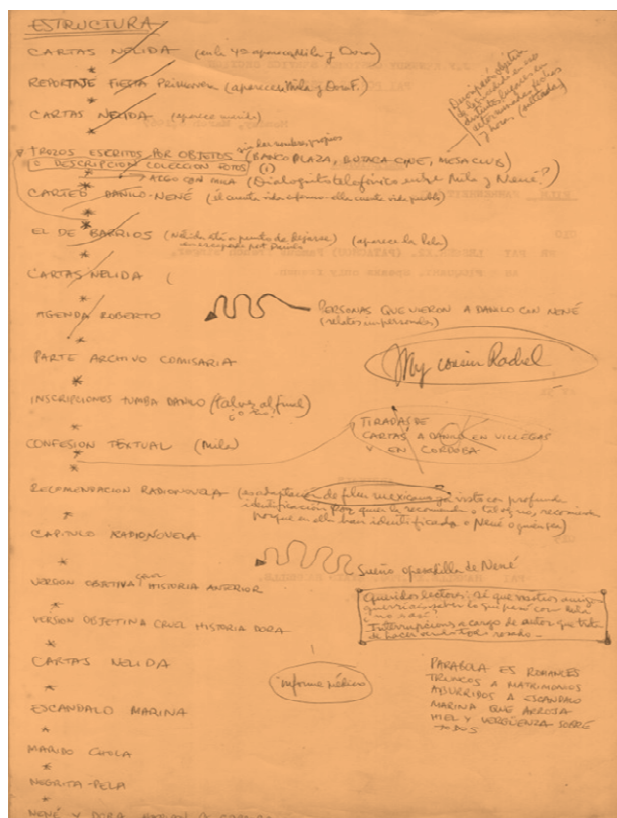 ESTRUCTURA
CARTAS NELIDA (en la 4ª aparece Mila y Dora)
*
REPORTAJE FIESTA PRIMAVERA (aparece Mila y Dora F.)
*
CARTAS NELIDA (aparece marido)
*
TROZOS ESCRITOS POR OBJETOS (BANCO PLAZA, BUTACA CINE, MESA CLUB)
sin los nombres propios
O DESCRIPCION COLECCION FOTOS (1)
* ALGO CON MILA (Dialoguito telefónico entre Mila y Nené?)
CARTEO DANILO-NENÉ (él cuenta vida enfermo - ella cuenta vida pueblo)
*
EL DE BARRIOS (Nélida está a punto de dejarse) (aparece la Pela)
*
CARTAS NELIDA (
*
AGENDA ROBERTO
PERSONAS QUE VIERON A DANILO CON NENÉ
(relatos impersonales)
*
PARTE ARCHIVO COMISARIA
My cousin Rachel
*
INSCRIPCIONES TUMBA DANILO (talvez al final)
¿o no?
*
CONFESION TEXTUAL (Mila)
TIRADAS DE
CARTAS A DANILO EN VILLEGAS
Y EN CORDOBA
*
*
RECOMENDACION RADIONOVELA (adaptación de film mexicano ya visto con profunda
identificación por quien la recomienda o tal vez no, recomienda
porque en ella han identificado a Nené o quien sea)
*
CAPITULO RADIONOVELA
*
Sueño o pesadilla de Nené
VERSION OBJETIVA cruel HISTORIA ANTERIOR
*
VERSION OBJETIVA CRUEL HISTORIA DORA
Queridos lectores: sé que vosotros amigos
querríais saber lo que pasó con
Interrupciones a cargo de autor que trata
de hacer todo rosado.-
*
CARTAS NELIDA
informe médico
*
ESCANDALO MARINA
PARABOLA ES ROMANCES
TRUNCOS A MATRIMONIOS
ABURRIDOS A ESCANDALO
MARINA QUE ARROJA
MIEL Y VERGÜENZA SOBRE
TODOS
*
MARIDO CHOLA
*
NEGRITA-PELA
*
NENÉ Y DORA